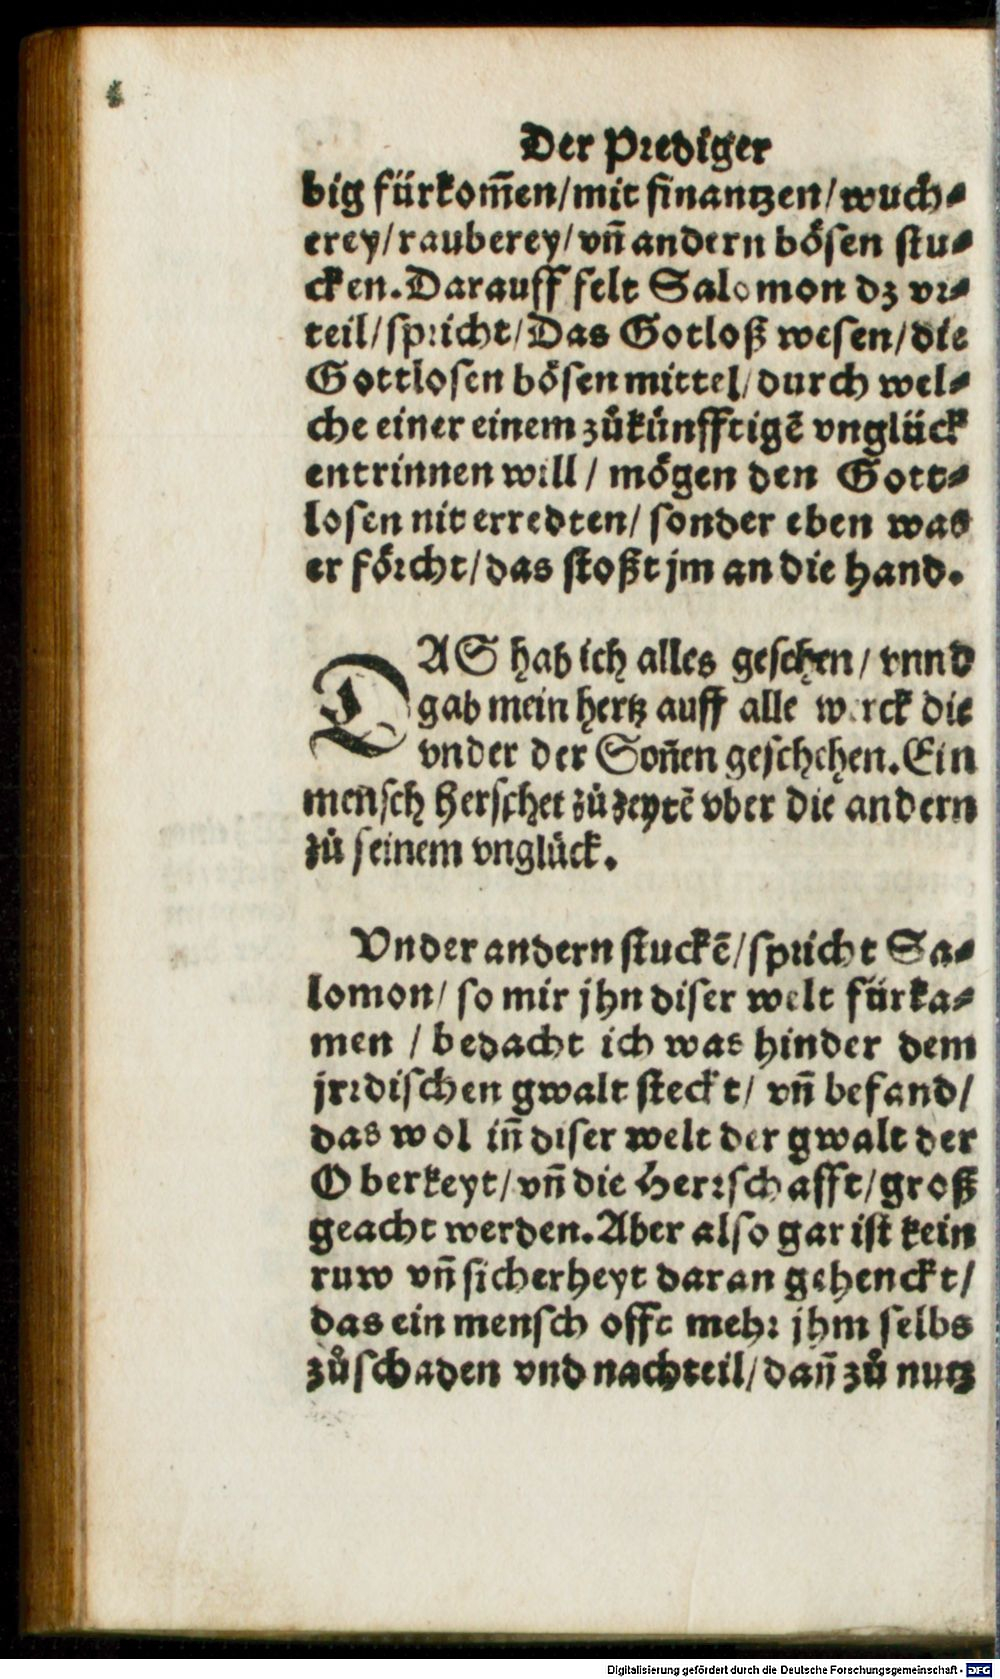 Der Prediger
big fürkom̄en/mit finantzen/wuch⸗
erey/rauberey/vn̄ andern bösen stu⸗
cken.Darauff felt Salomon dz vr⸗
teil/spricht/Das Gotloß wesen/die
Gottlosen bösen mittel/durch wel⸗
che einer einem zůkünfftigē vnglück
entrinnen will/ mögen den Gott⸗
losen nit erredten/ sonder eben was
er förcht/das stoßt jm an die hand.
DAS hab ich alles gesehen/ vnnd
gab mein hertz auff alle werck die
vnder der Son̄en geschehen.Ein
mensch herschet zů zeytē vber die andern
zů seinem vnglück.
Vnder andern stuckē/spricht Sa⸗
lomon/ so mir jhn diser welt fürka⸗
men / bedacht ich was hinder dem
jrrdischen gwalt steckt/ vn̄ befand/
das wol in̄ diser welt der gwalt der
Oberkeyt/vn̄ die Herrschafft/groß
geacht werden.Aber also gar ist kein
ruw vn̄ sicherheyt daran gehenckt/
das ein mensch offt mehr jhm selbs
zůschaden vnd nachteil/dan̄ zů nutz
Digitalisierung gefördert durch die Deutsche Forschungsgemeinschaft - DFG